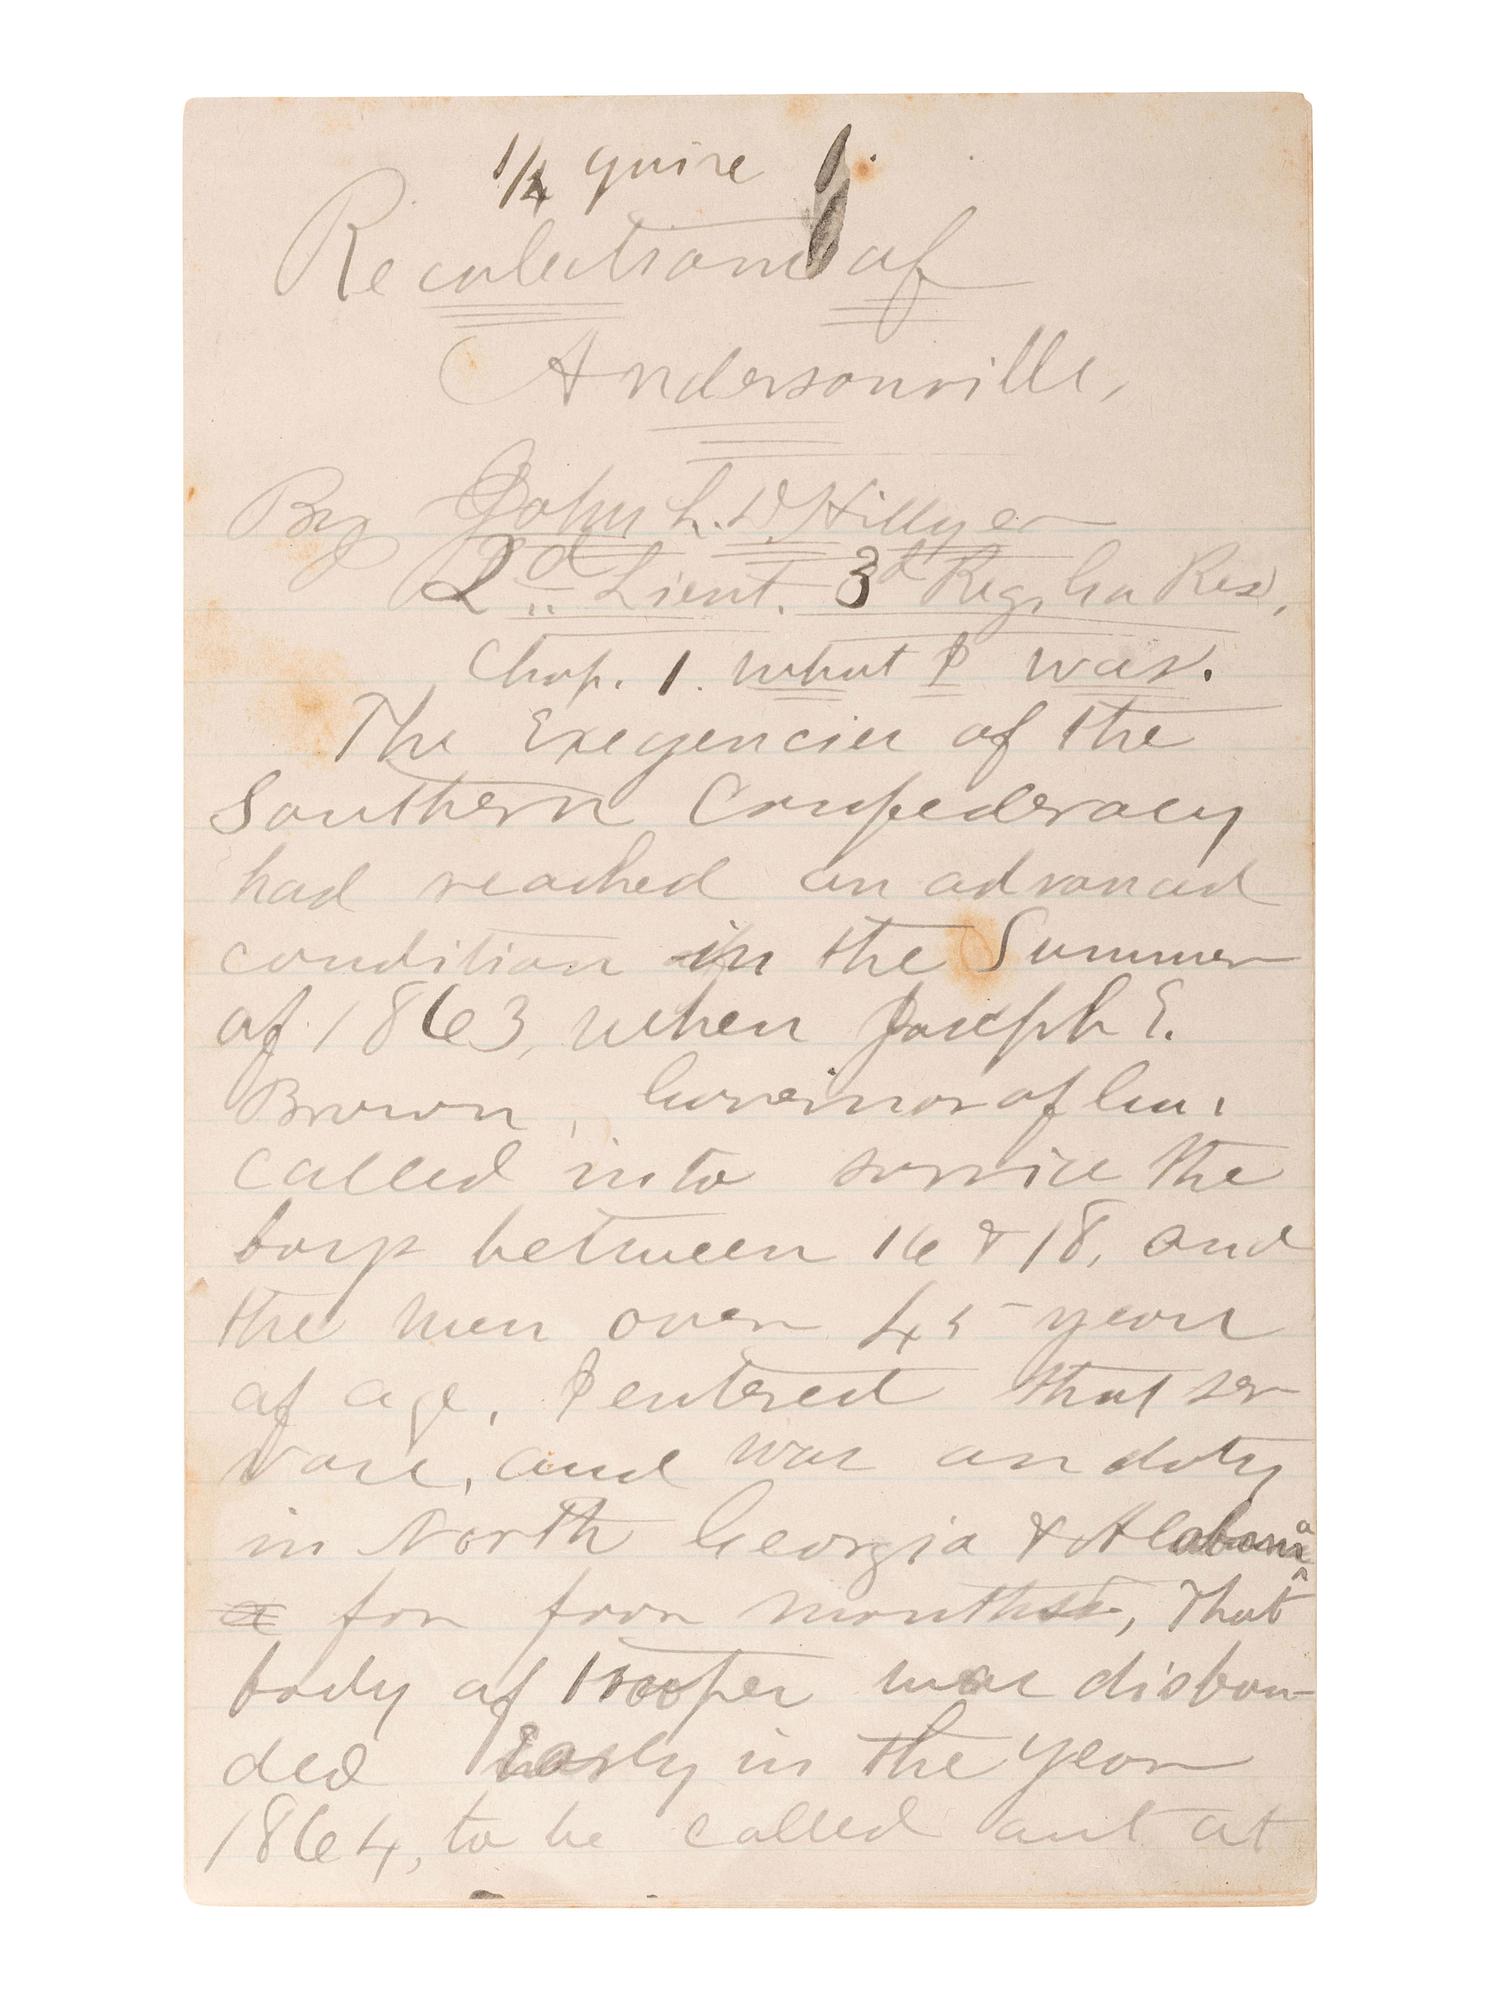 1/4 quire 1.
Recolections of
Andersonville,
By John L. D. Hillyer
2d Lieut. 3d Reg, Ga Res,
Chap. 1. What I was.
The Exegencies of the
Southern Confederacy
had reached an advanced
condition in the Summer
of 1863, when Joseph E.
Brown, Governor of Ga,
Called into service the
boys between 16 & 18, and
the men over 45 years
of age, I entered that ser
vace, and was on duty
in North Georgia & Alabama
for foor months, That
body of troopes was disban-
ded Early in the year
1864, to be called out at